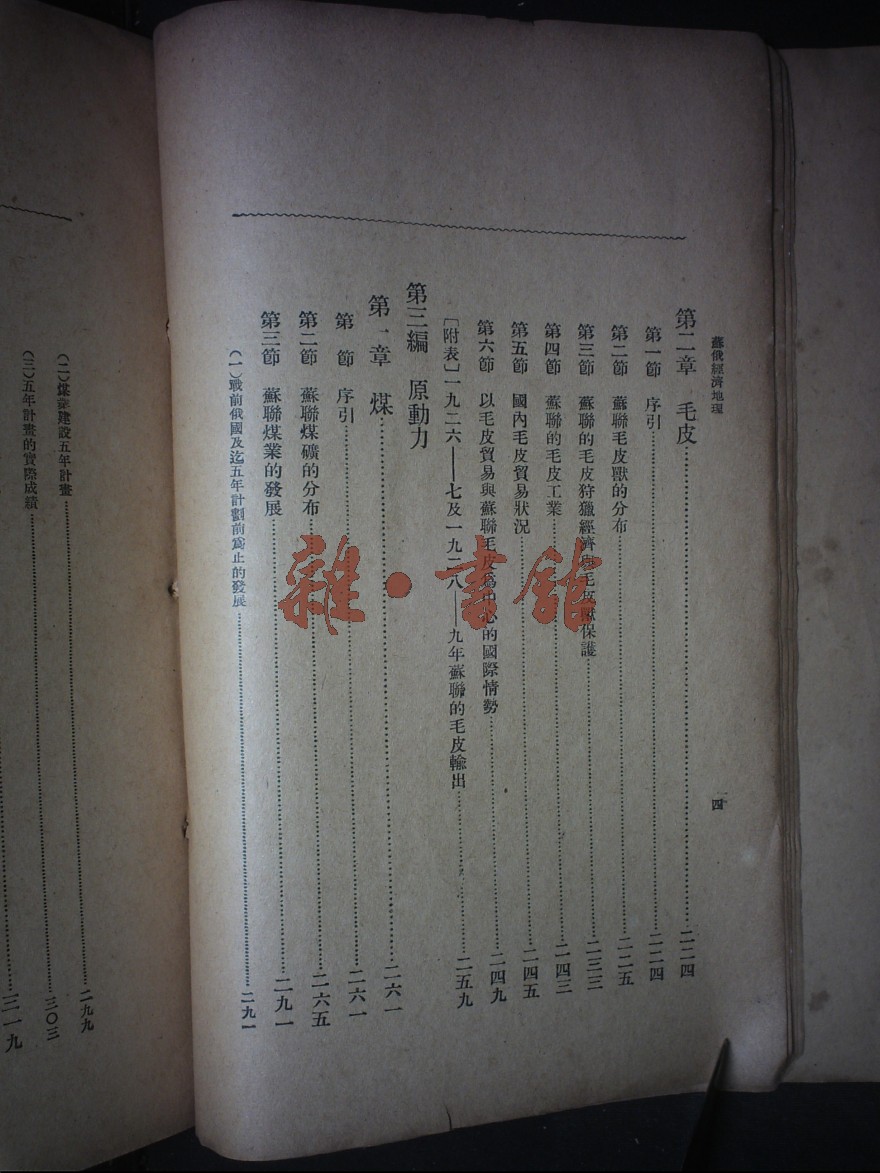 蘇俄經濟地理
一四
第二章 毛皮……二二四
第一節 序引……二二四
第二節 蘇聯毛皮獸的分布……二二五
第三節 蘇聯的毛皮狩獵經濟與毛皮獸保護……二三三
第四節 蘇聯的毛皮工業……二四三
第五節 國內毛皮貿易狀況……二四五
第六節 以毛皮貿易與蘇聯毛皮爲中心的國際情勢……二四九
〔附表〕一九二六——七及一九二八——九年蘇聯的毛皮輸出……二五九
第三編 原動力
第一章 煤……二六一
第 節 序引……二六一
第二節 蘇聯煤礦的分布……二六五
第三節 蘇聯煤業的發展……二九一
(一)戰前俄國及迄五年計劃前爲止的發展……二九一
(二)煤業建設五年計畫……二九九
(三)五年計畫的實際成績……三〇三
三一九
雜·書館